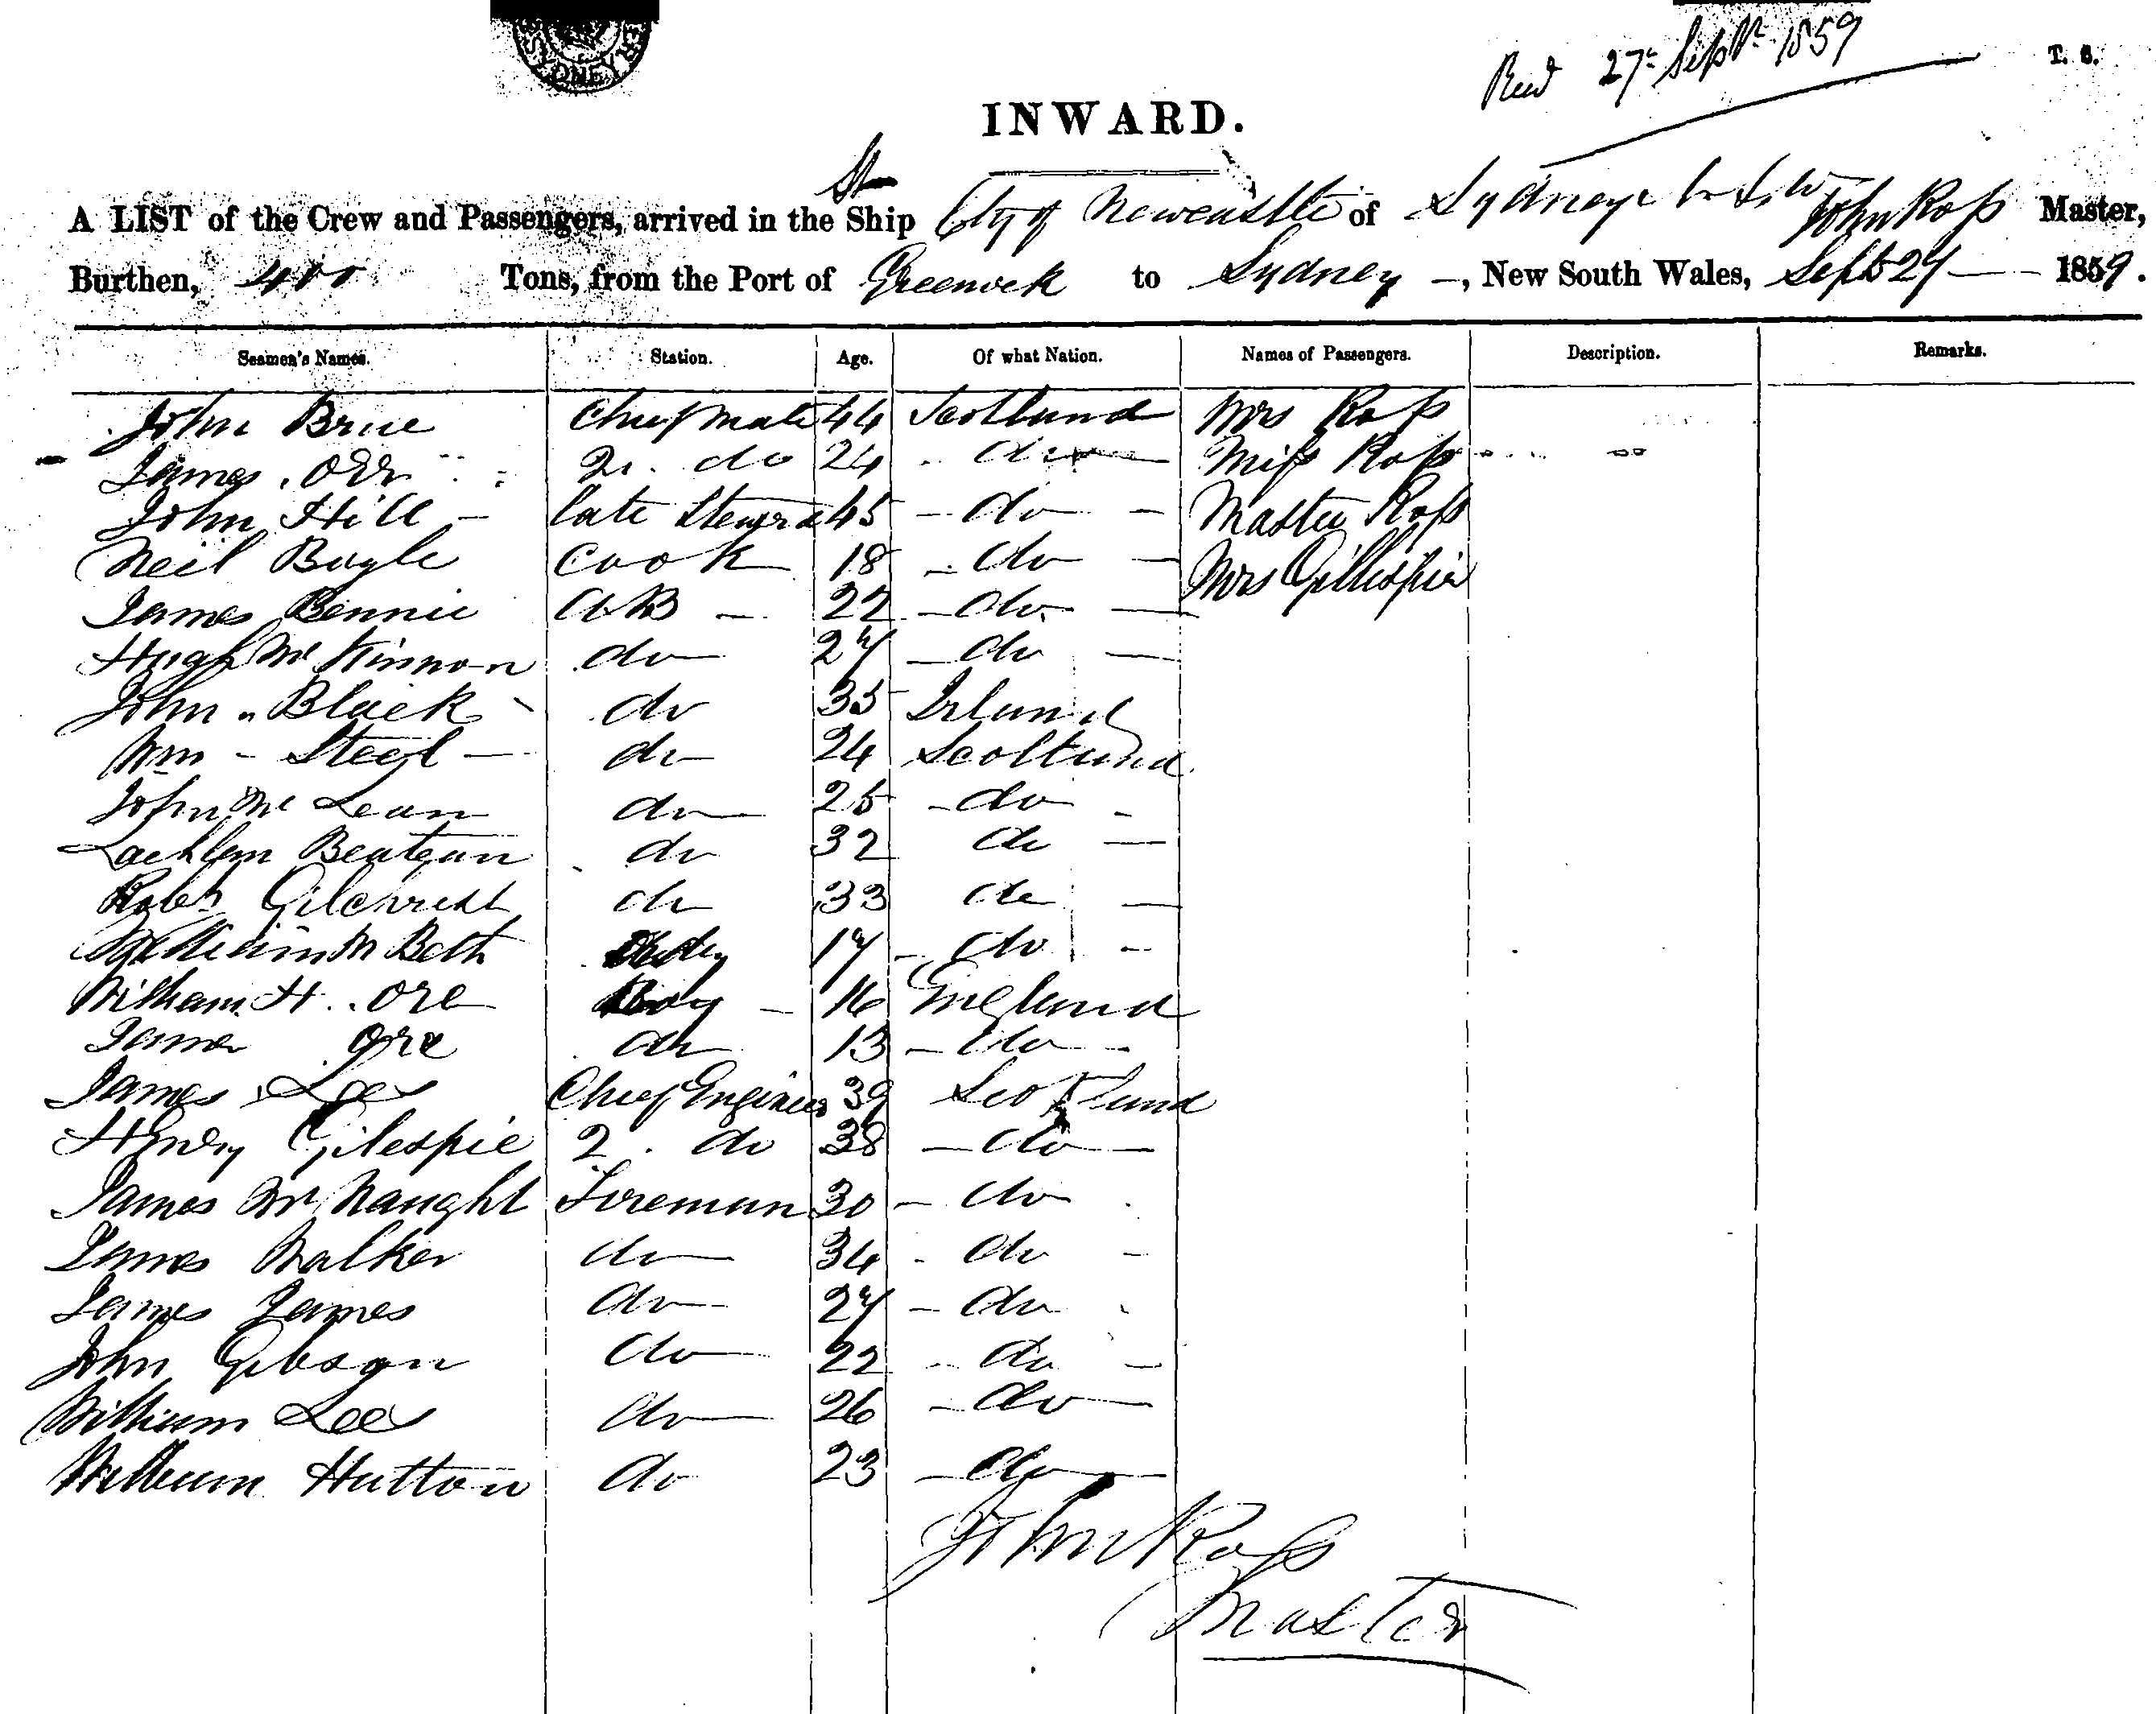 Recd 27th Septr 1859
T. S.
INWARD.
St
A LIST of the Crew and Passengers, arrived in the Ship City of Newcastle of Sydney N. S. W John Ross Master,
Burthen, 400 Tons, from the Port of Greenock to Sydney —, New South Wales, Sept 27 — 1859.
Seamen's Names. Station. Age. Of what Nation. Names of Passengers. Description. Remarks.
John Brue Chief Mate 44 Scotland Mrs Ross
James Orr 2n. do 24 do Miss Ross
John Hill Steward 45 do Master Ross
Neil Bogle Cook 18 do Mrs Gillespie
James Bennie A.B 22 do
Hugh Mc Kinnon do 27 do
John Black do 35 Irland
Wm Steel do 24 Scotland
John Mc Lean do 25 do
Lachlan Beatgan do 32 do
Robt Gilchrist do 33 do
William Mc Beth 17 do
William H. Ore Boy 16 England
James Ore do 13 do
James Lees Chief Engineer 39 Scotland
Henry Gilespie 2. do 38 do
James Mc Naught Fireman 30 do
James Walker do 34 do
James James do 27 do
John Gibson do 22 do
William Lees do 26 do
William Hutton do 23 do
John Ross
Master